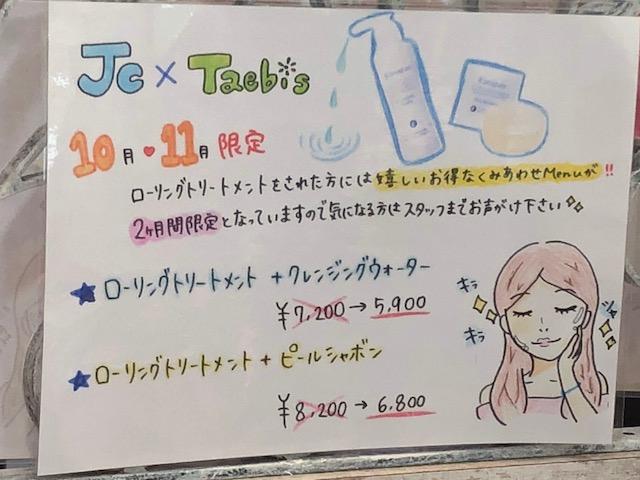 Jc × Taebis
10月・11月 限定
ローリングトリートメントをされた方には嬉しいお得なくみあわせMenuが!!
2ヶ月間限定となっていますので気になる方はスタッフまでお声がけ下さい
★ローリングトリートメント + クレンジングウォーター
¥7,200→5,900
キラ
キラ
★ローリングトリートメント + ピールシャボン
¥8,200→6,800